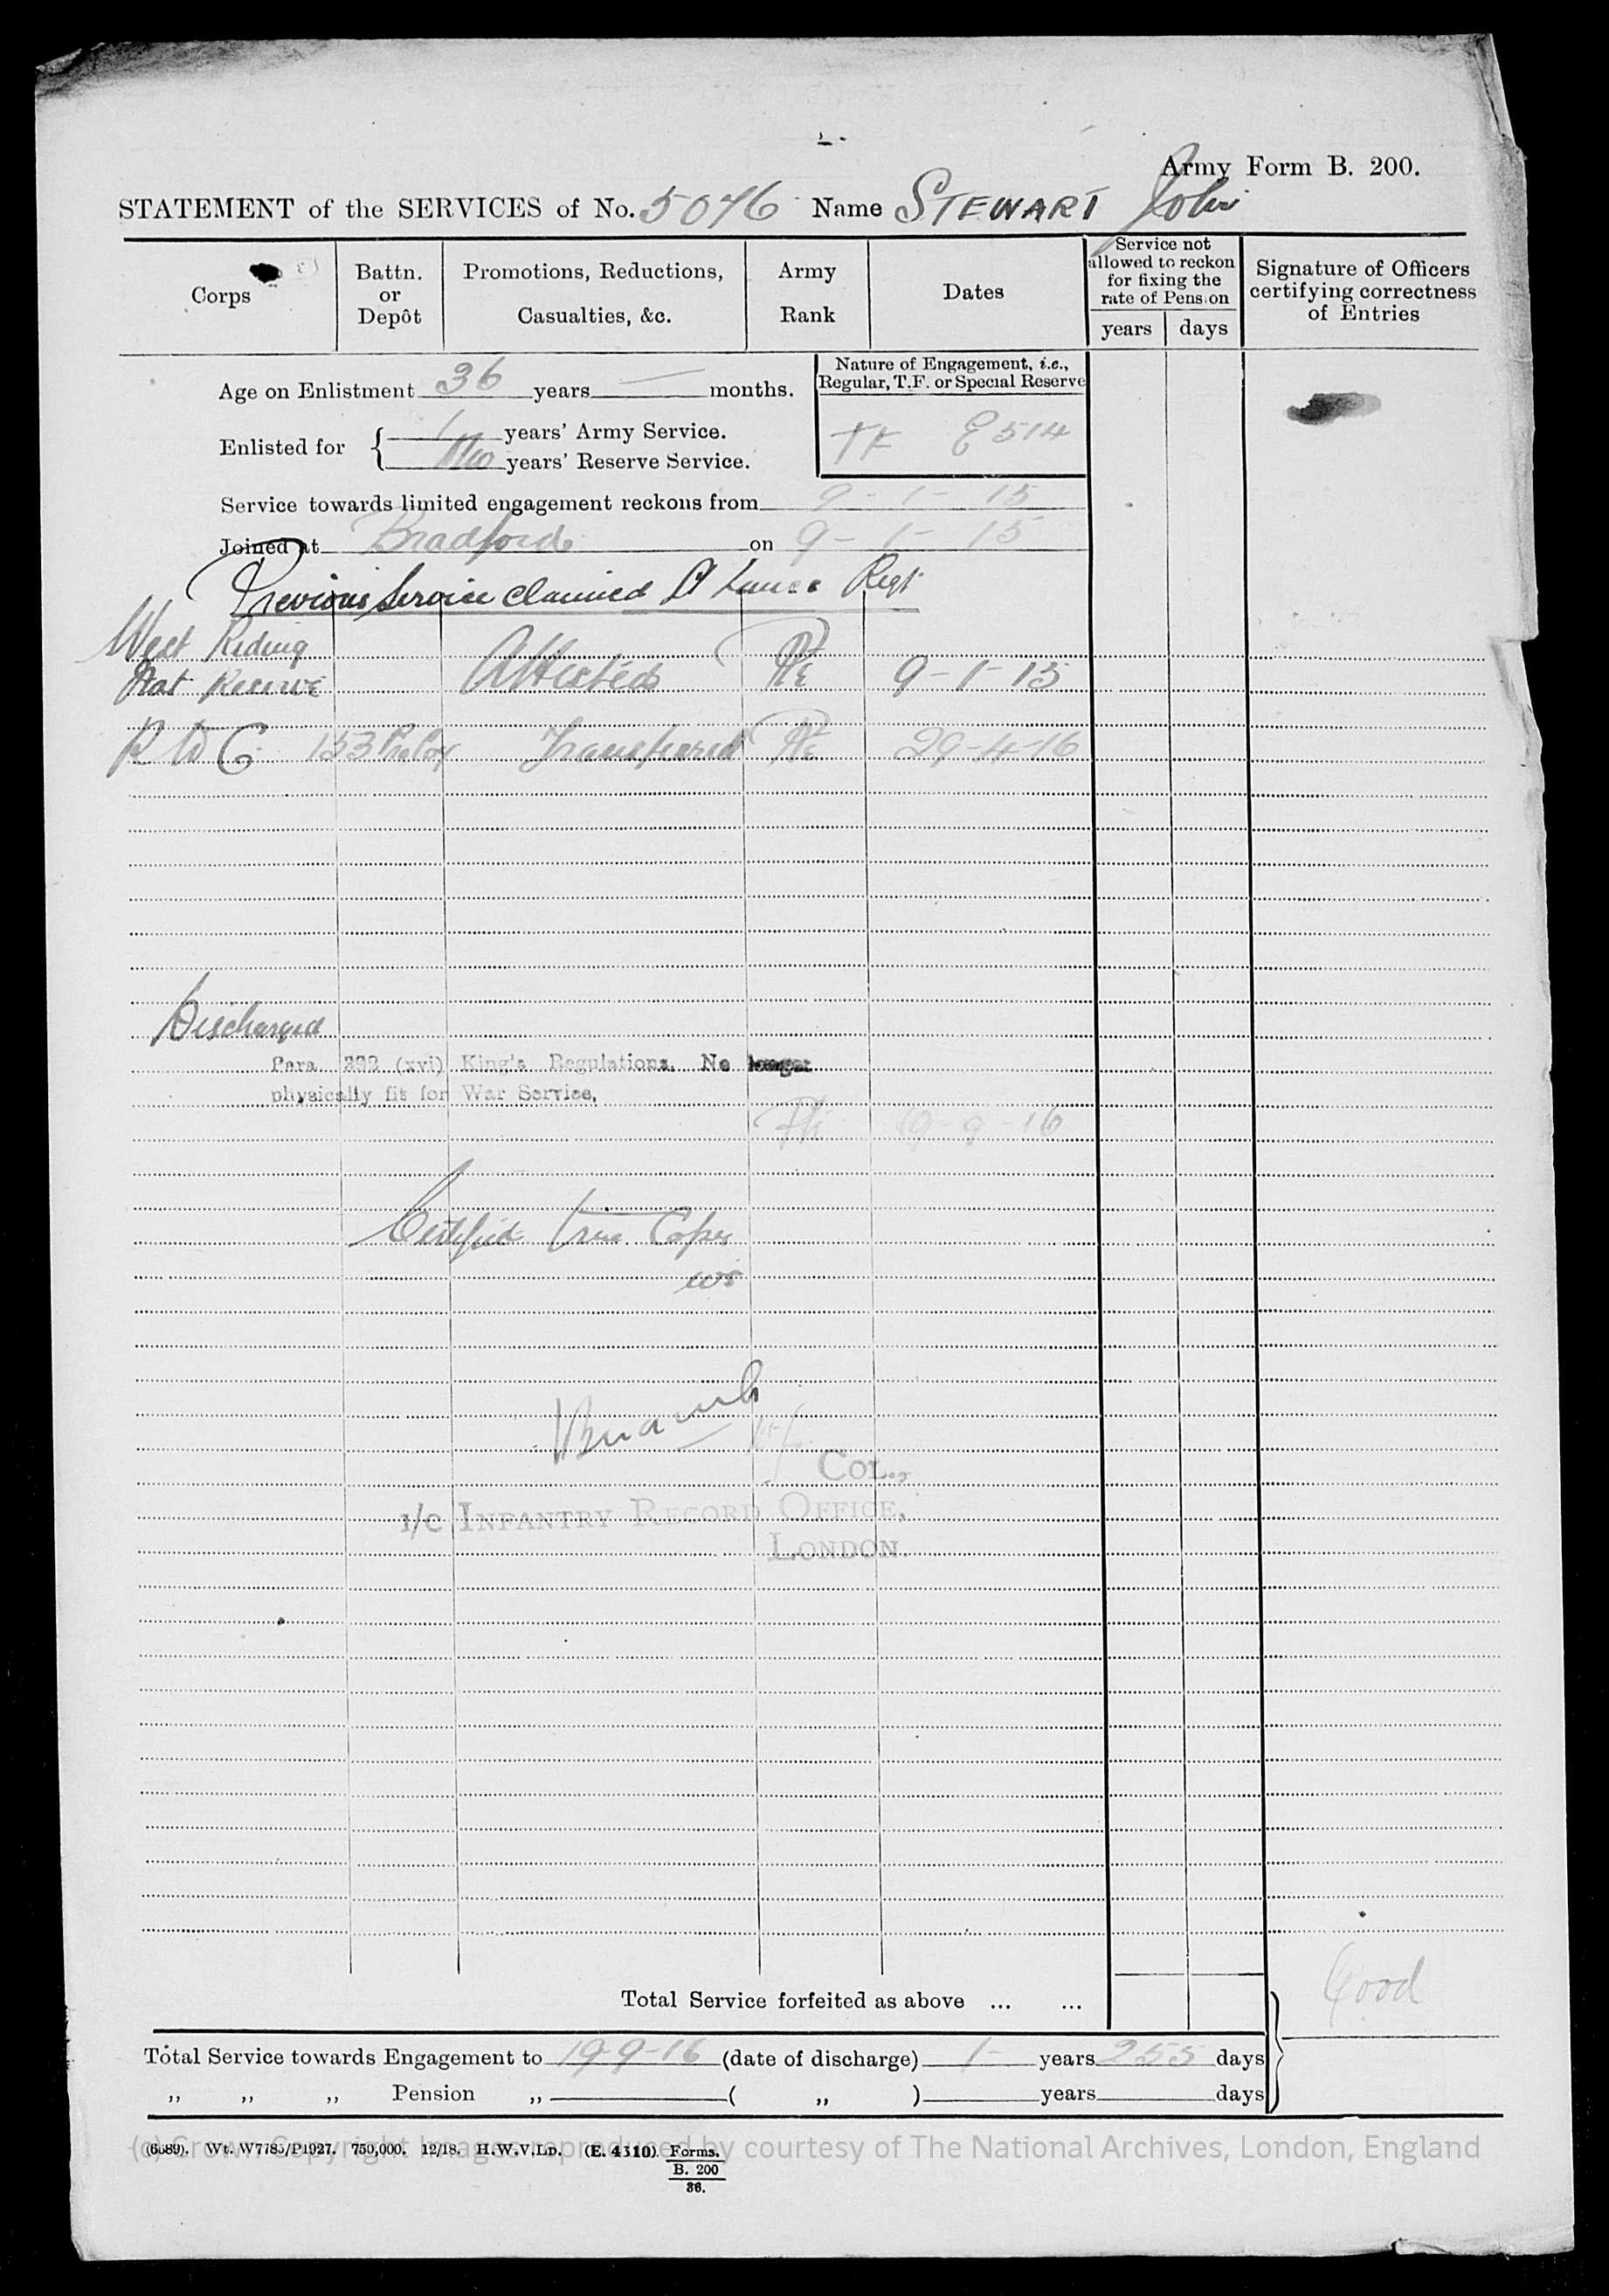 Army Form B. 200.
STATEMENT of the SERVICES of No. 5076 Name STEWART John
Corps
Battn. or Depôt
Promotions, Reductions, Casualties, &c.
Army Rank
Dates
Service not allowed to reckon for fixing the rate of Pension
years days
Signature of Officers certifying correctness of Entries
Age on Enlistment 36 years — months.
Nature of Engagement, i.e., Regular, T.F. or Special Reserve
TF E 514
Enlisted for { 1 years' Army Service.
years' Reserve Service.
Service towards limited engagement reckons from 9-1-15
Joined at Bradford on 9-1-15
Previous Service claimed Lancs Regt
West Riding
Nat Reserve Attested Pte 9-1-15
153 Transferred Pte 29-4-16
Discharged
Para 392 (xvi) King's Regulations. No longer
physically fit for War Service.
Pte 19-9-16
Certified true Copy
COL.,
i/c INFANTRY RECORD OFFICE,
LONDON.
Total Service forfeited as above ... ...
Good
Total Service towards Engagement to 19-9-16 (date of discharge) 1 years 255 days
,, ,, ,, Pension ,, ( ,, ) years days
(6689). Wt. W7785/P1927. 750,000. 12/18. H.W.V.LD. (E. 4310). Forms.
B. 200
36.
(c) Crown Copyright Images reproduced by courtesy of The National Archives, London, England